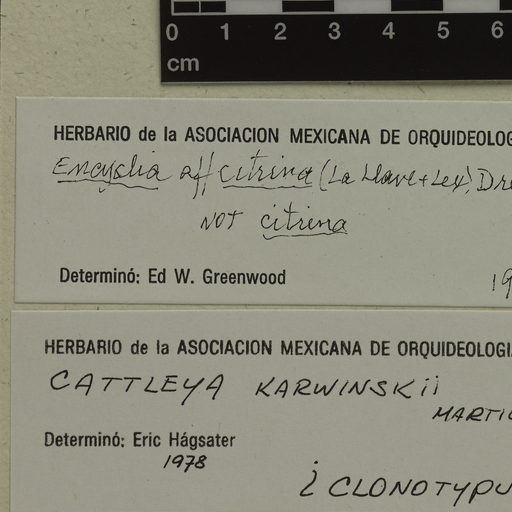 0 1 2 3 4 5 6
cm
HERBARIO de la ASOCIACION MEXICANA DE ORQUIDEOLOG
Encyclia aff citrina (La Llave + Lex), Dre
NOT citrina
Determinó: Ed W. Greenwood 19
HERBARIO de la ASOCIACION MEXICANA DE ORQUIDEOLOGI
CATTLEYA KARWINSKii
MARTIU
Determinó: Eric Hágsater
1978
¿ CLONOTYPU